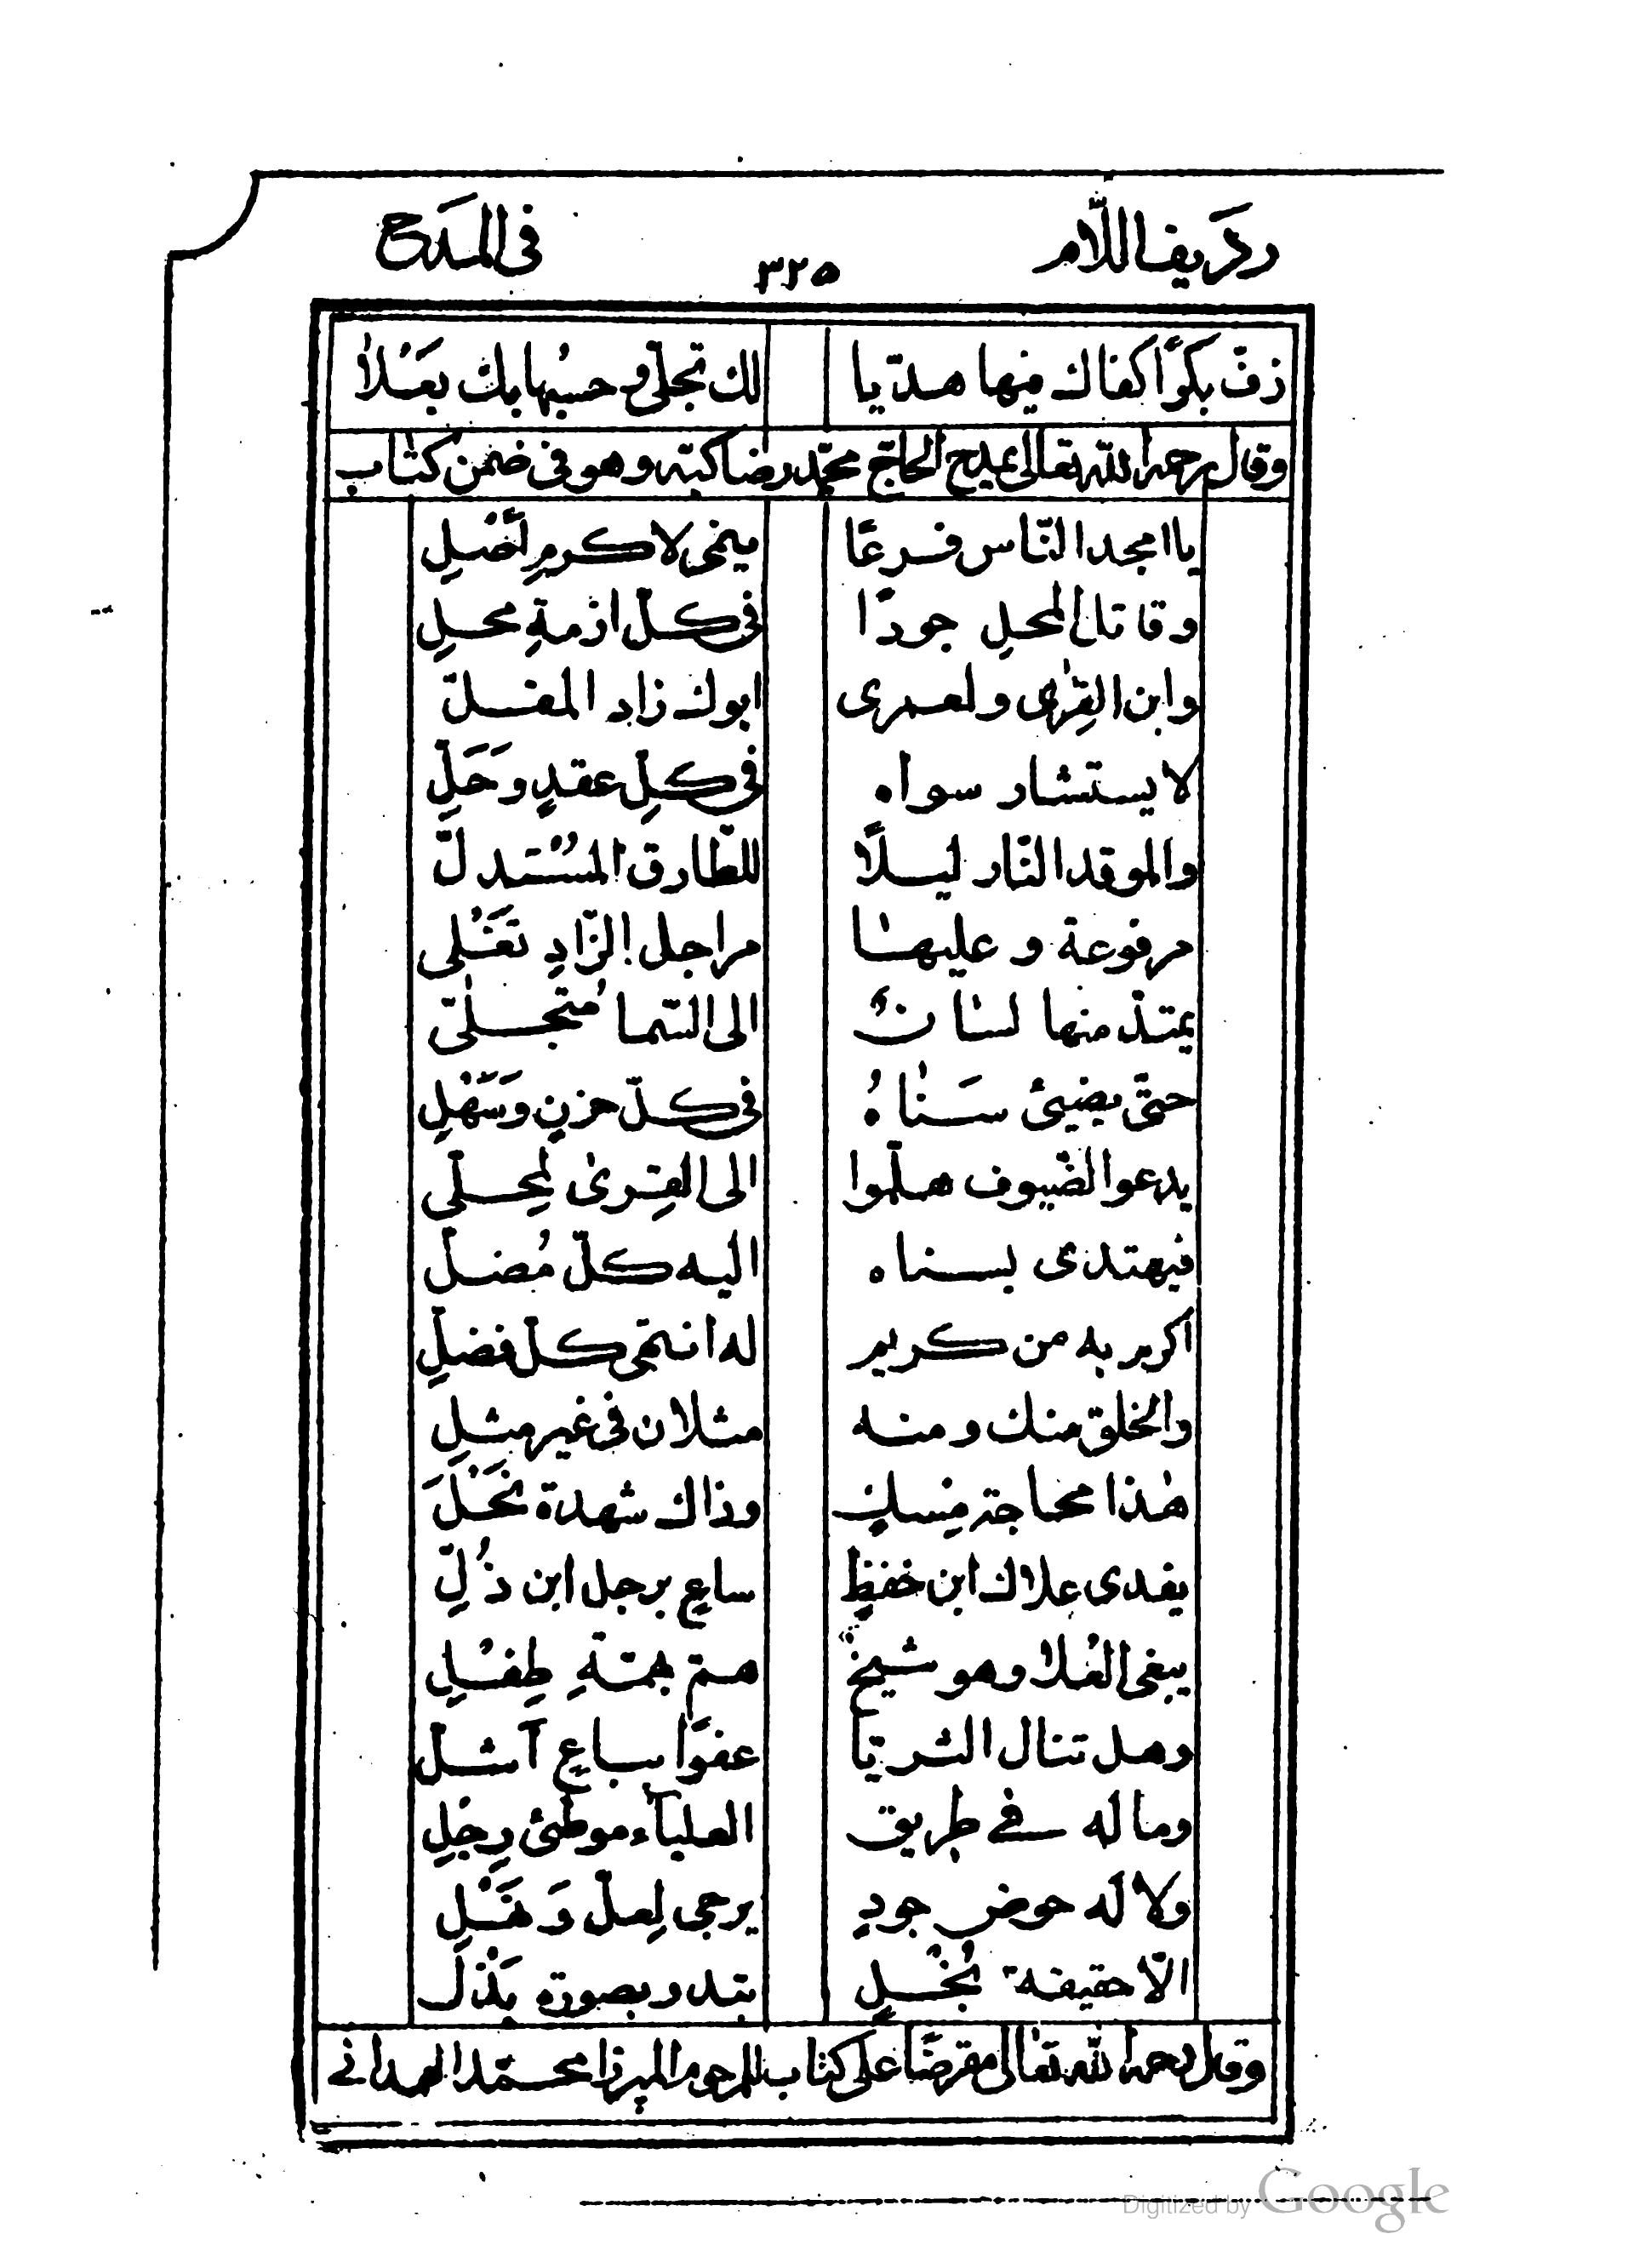 رديف اللام ٣٢٥ في المدح
زفّ بكرًا كفاك فيها هديا لك تجلّى وحسبها بك بَعْلا
وقال رحمه الله تعالى يمدح الحاج محمّد رضا كبّه وهو في ضمن كتاب
يا امجد النّاس فرعًا ينمى لاكرمِ اَصْلِ
وقاتل المحلِ جودًا في كلّ ازمةِ محلِ
وابن القِرٰى ولعمرى ابوك زاد المقلّ
لا يستشار سواه في كلِ عقدٍ وحَلِّ
والموقد النّار ليلًا للطّارق المُسْتدلّ
مرفوعة وعليها مراجل الزّادِ تَغْلى
يمتدّ منها لسانٌ الى السّما مُتجلّى
حتّى يضيئ سَناهُ في كلّ حزنٍ وسَهْلِ
يدعوا الضّيوف هلمّوا الى القِرىٰ لمِحلّى
فيهتدى بسناه اليه كلّ مُضلّ
اكرم به من كريم له انتمى كلّ فضلِ
والخلق منك ومنه مثلان في غير مثلِ
هٰذا مجاجة مِسكٍ وذاك شهدة نَحْلَ
يفدى علاك ابن خفضٍ ساعٍ برجل ابن ذُلِّ
يبغى العُلا وهو شيخ همّ بهمّةِ طِفْلِ
وهل تنال الثريّا عفوًا بباعٍ اَشلّ
وماله في طريق العلياء موطئ رِجْلِ
ولا له حوض جودٍ يرجى لِعلّ وَنَهْلِ
الّا حقيقة بُخْلٍ بتدو بصورة بَذْل
وقال رحمه الله تعالى مقرضًا على كتاب للمرحوم الميرزا محمّد الهمداني
Digitized by Google